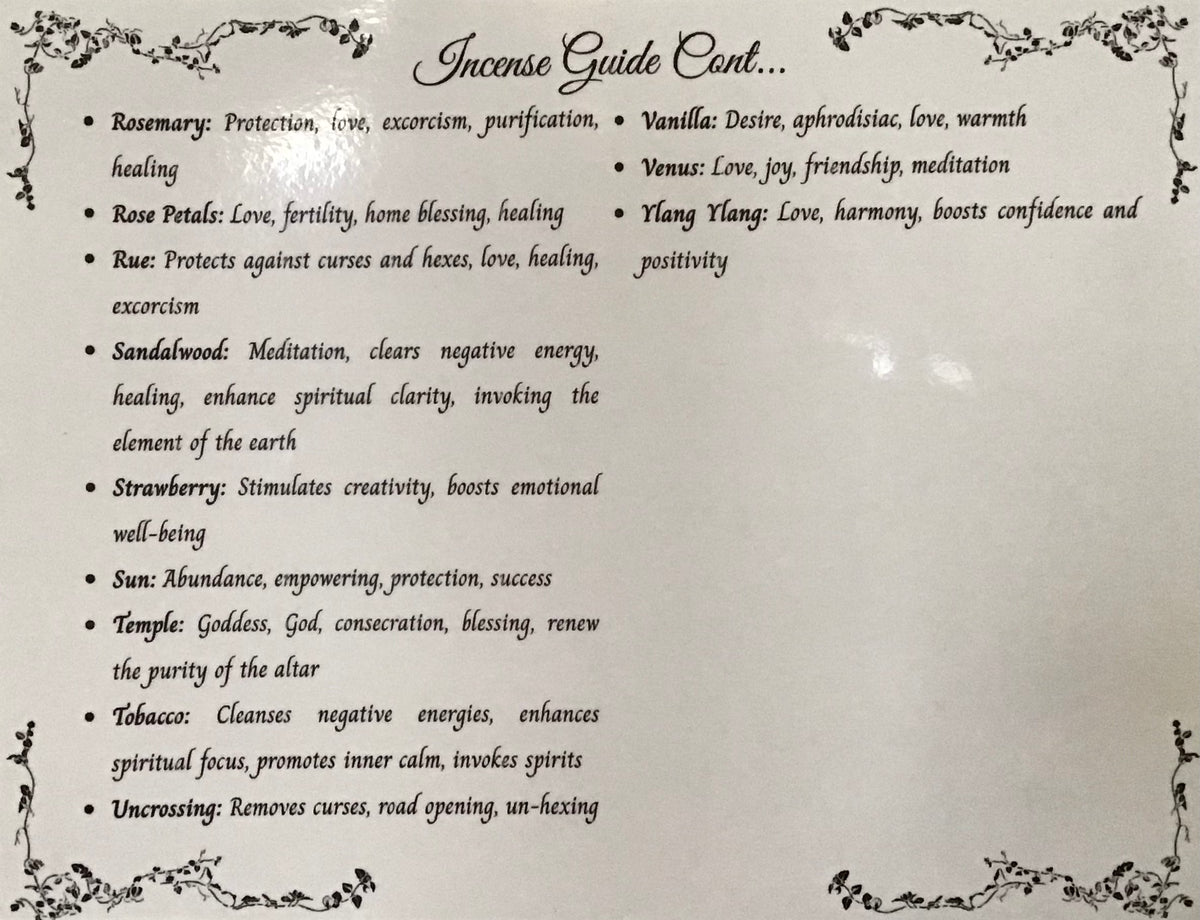 Incense Guide Cont...
• Rosemary: Protection, love, excorcism, purification,
healing
• Rose Petals: Love, fertility, home blessing, healing
• Rue: Protects against curses and hexes, love, healing,
excorcism
• Sandalwood: Meditation, clears negative energy,
healing, enhance spiritual clarity, invoking the
element of the earth
• Strawberry: Stimulates creativity, boosts emotional
well-being
• Sun: Abundance, empowering, protection, success
• Temple: Goddess, God, consecration, blessing, renew
the purity of the altar
• Tobacco: Cleanses negative energies, enhances
spiritual focus, promotes inner calm, invokes spirits
• Uncrossing: Removes curses, road opening, un-hexing
• Vanilla: Desire, aphrodisiac, love, warmth
• Venus: Love, joy, friendship, meditation
• Ylang Ylang: Love, harmony, boosts confidence and
positivity